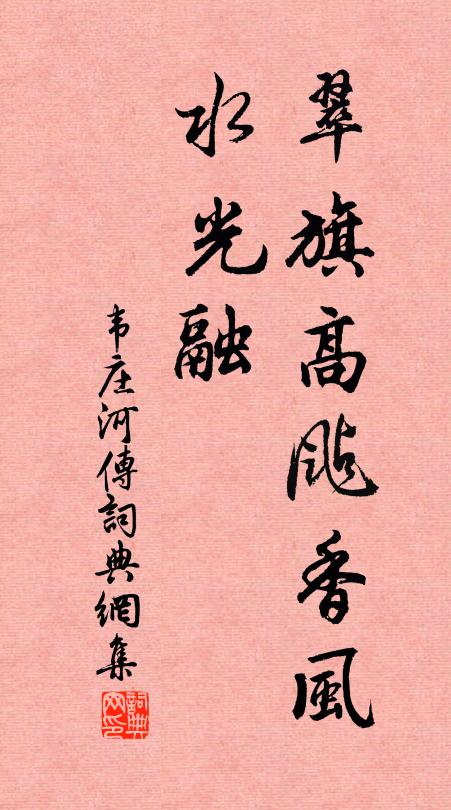 翠旗高颭香風
水光融
韦庄河傳詞典網集
詞典网印